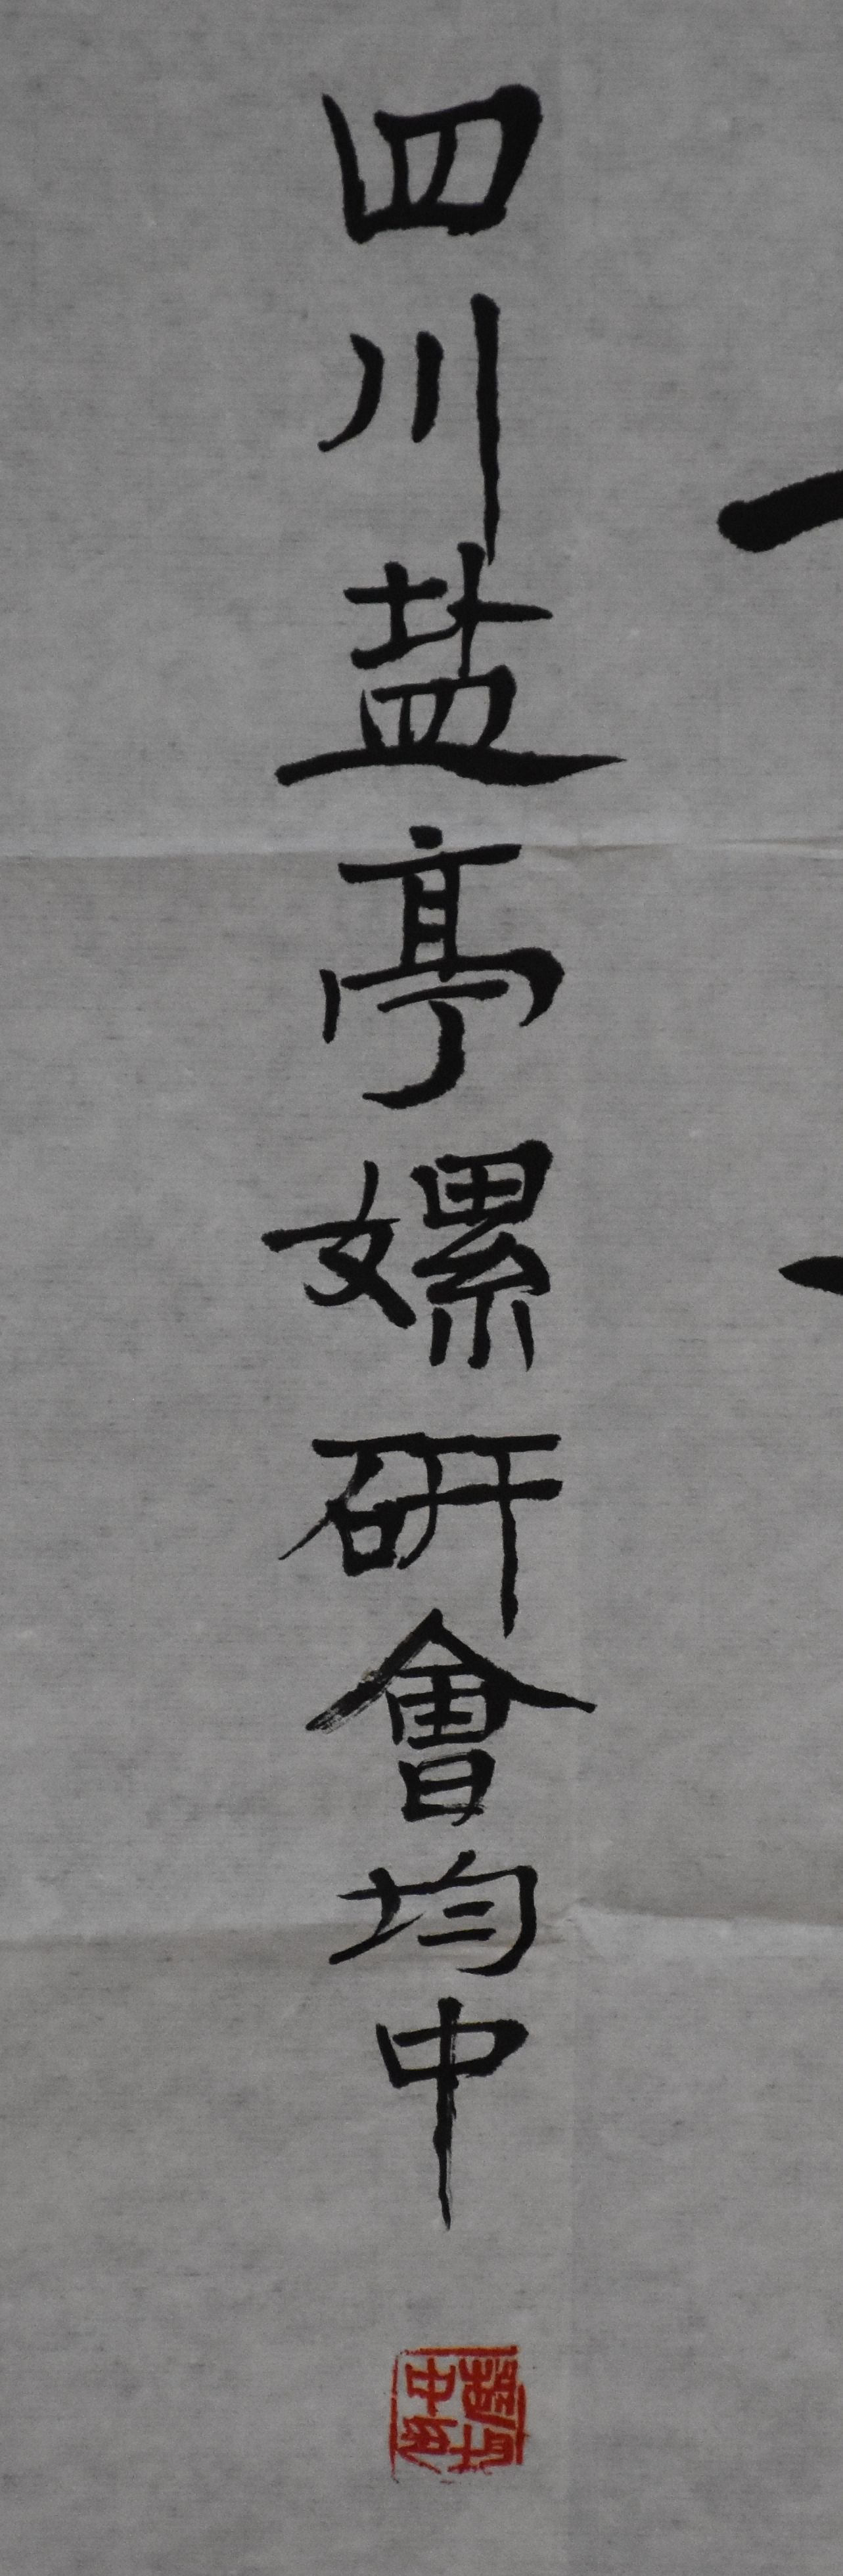 四川盐亭嫘研會均中
趙均中印